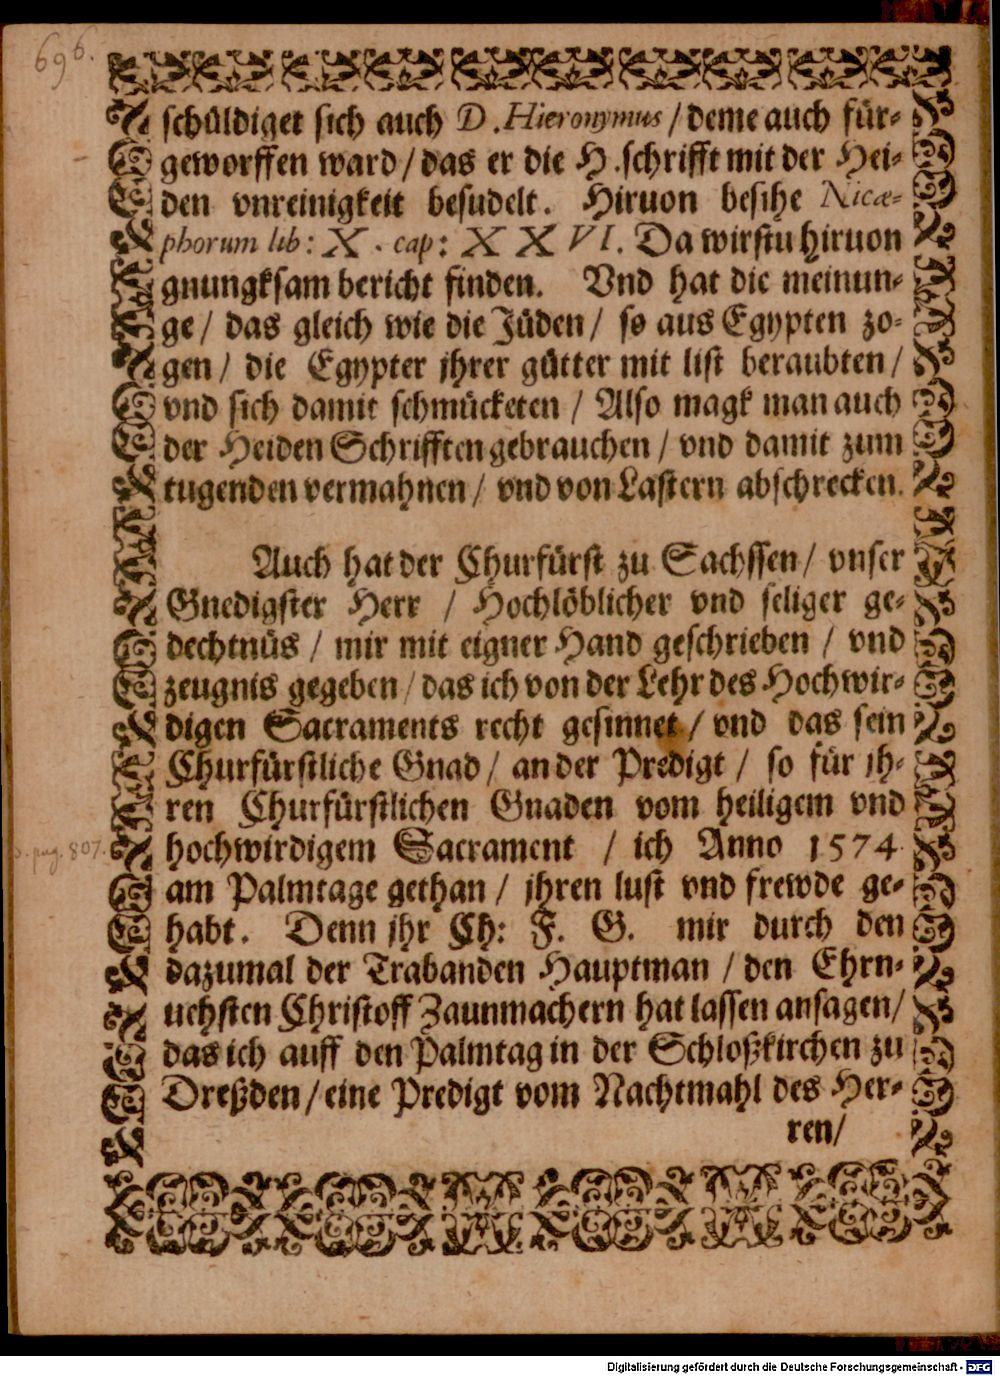 696.
schüldiget sich auch D. Hieronymus / deme auch für-
geworffen ward / das er die H. schrifft mit der Hei-
den vnreinigkeit besudelt. Hiruon besihe Nicæ-
phorum lib: X. cap: XXVI. Da wirstu hiruon
gnungksam bericht finden. Vnd hat die meinun-
ge / das gleich wie die Jüden / so aus Egypten zo-
gen / die Egypter jhrer gütter mit list beraubten /
vnd sich damit schmücketen / Also magk man auch
der Heiden Schrifften gebrauchen / vnd damit zum
tugenden vermahnen / vnd von Lastern abschrecken.
Auch hat der Churfürst zu Sachssen / vnser
Gnedigster Herr / Hochlöblicher vnd seliger ge-
dechtnüs / mir mit eigner Hand geschrieben / vnd
zeugnis gegeben / das ich von der Lehr des Hochwir-
digen Sacraments recht gesinnet / vnd das sein
Churfürstliche Gnad / an der Predigt / so für jh-
ren Churfürstlichen Gnaden vom heiligem vnd
hochwirdigem Sacrament / ich Anno 1574
pag. 807.
am Palmtage gethan / jhren lust vnd frewde ge-
habt. Denn jhr Ch: F. G. mir durch den
dazumal der Trabanden Hauptman / den Ehrn-
uehsten Christoff Zaunmachern hat lassen ansagen /
das ich auff den Palmtag in der Schloßkirchen zu
Dreßden / eine Predigt vom Nachtmahl des Her-
ren /
Digitalisierung gefördert durch die Deutsche Forschungsgemeinschaft - DFG